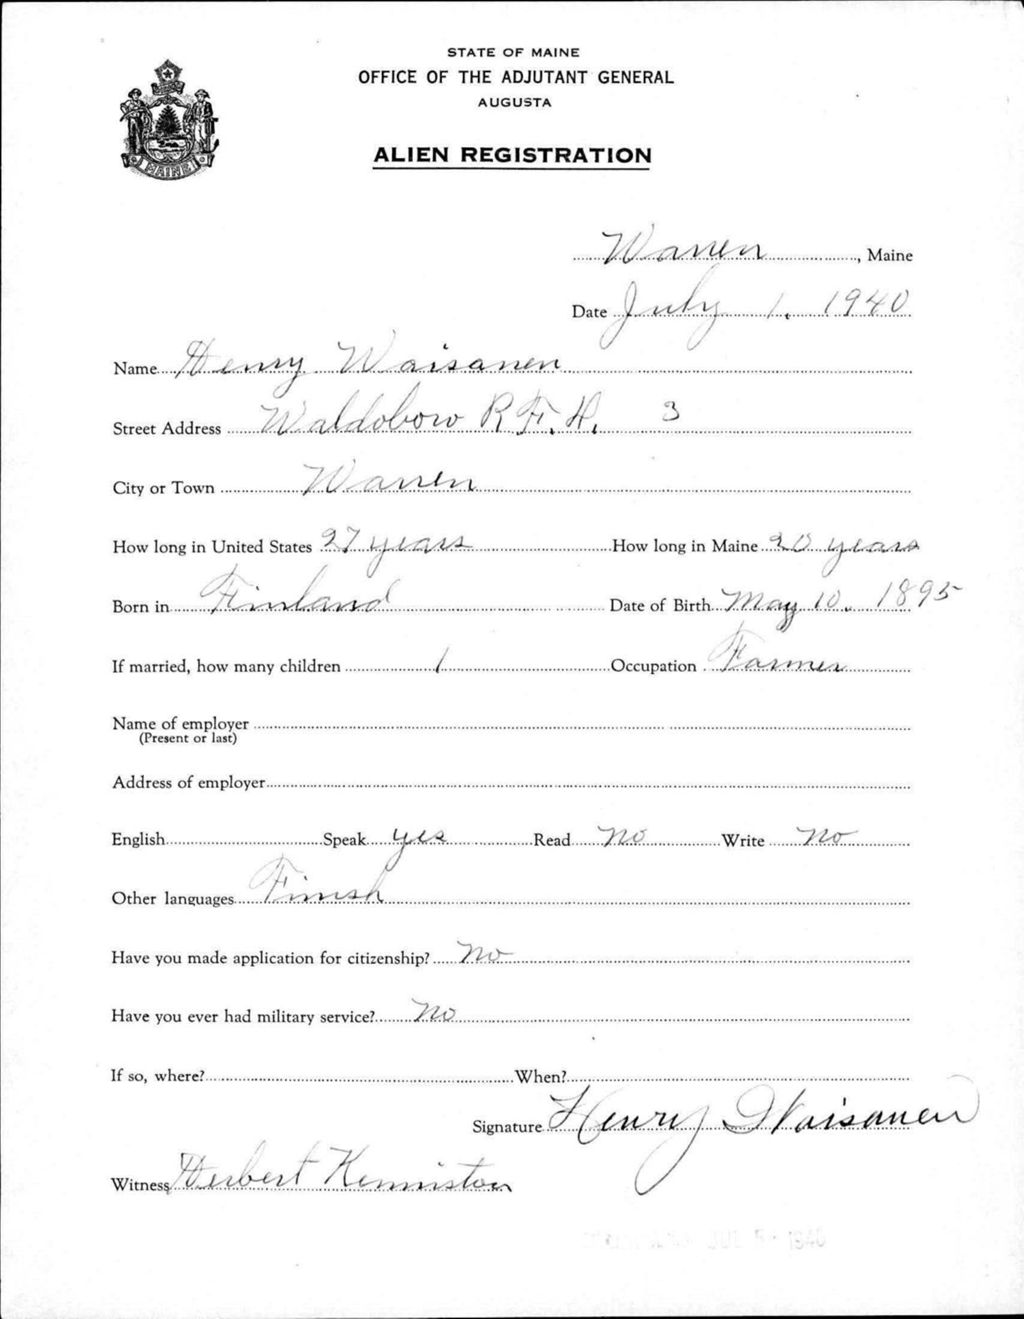 STATE OF MAINE
OFFICE OF THE ADJUTANT GENERAL
AUGUSTA
ALIEN REGISTRATION
MAINE
Warren, Maine
Date July 1, 1940
Name Henry Waisanen
Street Address Waldoboro R. F. H. 3
City or Town Warren
How long in United States 27 years How long in Maine 20 years
Born in Finland Date of Birth May 10, 1895
If married, how many children 1 Occupation Farmer
Name of employer
(Present or last)
Address of employer
English Speak yes Read No Write No
Other languages Finish
Have you made application for citizenship? No
Have you ever had military service? No
If so, where? When?
Signature Henry Waisanen
Witness Herbert Kenniston